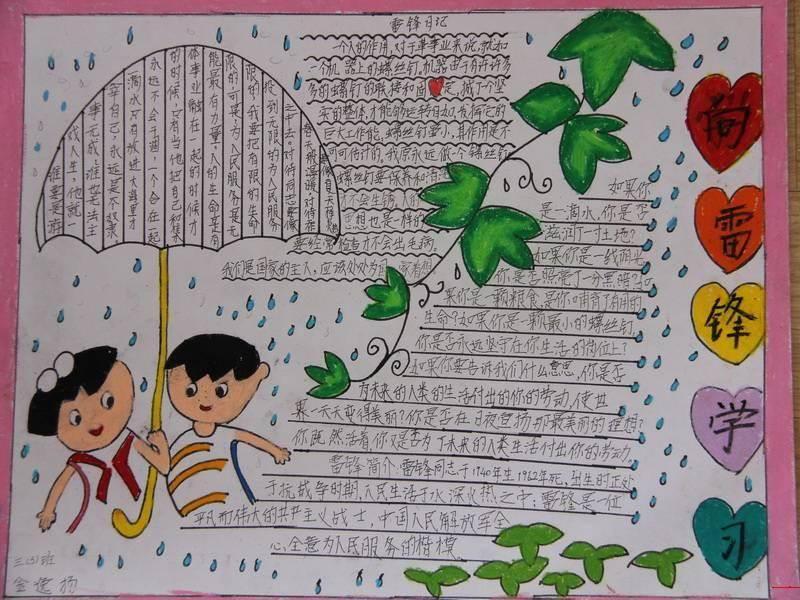 向
雷
锋
学
习
雷锋日记
一个人的作用,对于革事业来说,就和
一个机器上的螺丝钉。机器由于有许许多
多的螺钉的联接和固定,成了个坚
实的整体,才能够运转自如,发挥它的
巨大工作能。螺丝钉虽小,其作用是不
可估计的,我愿永远做一个螺丝钉
螺丝钉要保养和清
不会生锈。人的
思想也是一样的
要经常检查才不会出毛病。
我们是国家的主人,应该处处为国家着想
如果你
是一滴水,你是否
滋润了一寸土地?
如果你是一线阳光
你是否照亮了一分黑暗?如
果你是一颗粮食,是你哺育了有用的
生命?如果你是一颗最小的螺丝钉
你是否永远坚守在你生活的岗位上?
如果你要告诉我们什么思想,你是否
有未来的人类的生活付出的你的劳动,使世
界一天天变得美丽?你是否在日夜宣扬那最美丽的理想?
你既然活着,你又是否为了未来的人类生活付出你的劳动,
雷锋简介.雷锋同志于1940年生1962年死,出生的正处
于抗战争时期,人民生活于水深火热之中,雷锋是一位
平凡而伟大的共产主义战士,中国人民解放军全
心,全意为人民服务的楷模。
对待同志要像
春天般温暖,对待在
之中去。
投到无限的为人民服务
限的,我要把有限的生命
限的,可是,为人民服务是无
能最有力量,人的生命是有
体事业融在一起的时候才
的时候,只有当他把自己和集
永远不会干涸,一个会在一起
滴水只有放进大海里才
宰自己,永远是个奴隶。
事无成,谁若
戏人生,他就一
谁要是游
三(3)班